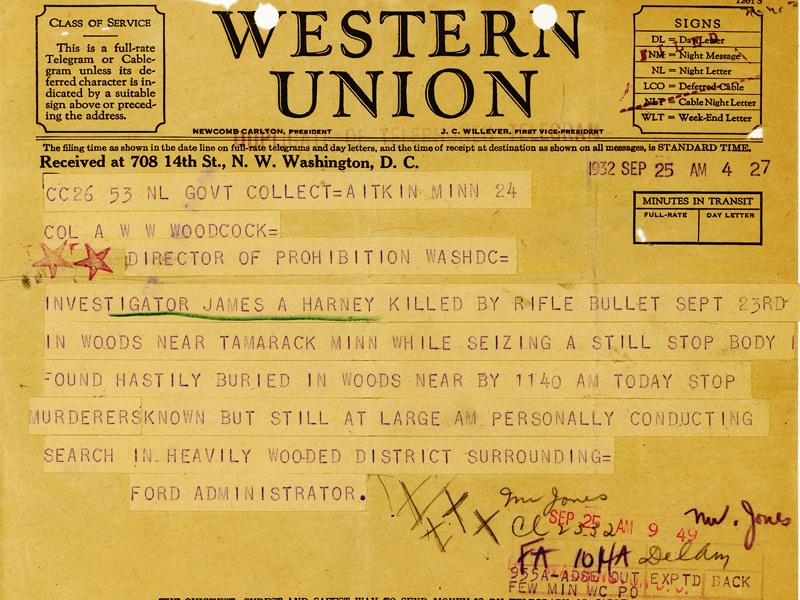 CLASS OF SERVICE
This is a full-rate
Telegram or Cable-
gram unless its de-
ferred character is in-
dicated by a suitable
sign above or preced-
ing the address.
WESTERN
UNION
NEWCOMB CARLTON, PRESIDENT
J. C. WILLEVER, FIRST VICE-PRESIDENT
SIGNS
DL = Day Letter
NM = Night Message
NL = Night Letter
LCO = Deferred Cable
NLT = Cable Night Letter
WLT = Week-End Letter
The filing time as shown in the date line on full-rate telegrams and day letters, and the time of receipt at destination as shown on all messages, is STANDARD TIME.
Received at 708 14th St., N. W. Washington, D. C.
1932 SEP 25 AM 4 27
MINUTES IN TRANSIT
FULL-RATE
DAY LETTER
CC26 53 NL GOVT COLLECT=AITKIN MINN 24
COL A W W WOODCOCK=
DIRECTOR OF PROHIBITION WASHDC=
INVESTIGATOR JAMES A HARNEY KILLED BY RIFLE BULLET SEPT 23RD
IN WOODS NEAR TAMARACK MINN WHILE SEIZING A STILL STOP BODY
FOUND HASTILY BURIED IN WOODS NEAR BY 1140 AM TODAY STOP
MURDERERSKNOWN BUT STILL AT LARGE AM PERSONALLY CONDUCTING
SEARCH IN HEAVILY WOODED DISTRICT SURROUNDING=
FORD ADMINISTRATOR.
Mr Jones
SEP 25 AM 9 49
Cl 2332
Mr. Jones
FA 10HA
955A-ADSE OUT EXPTD BACK
FEW MIN WC PO